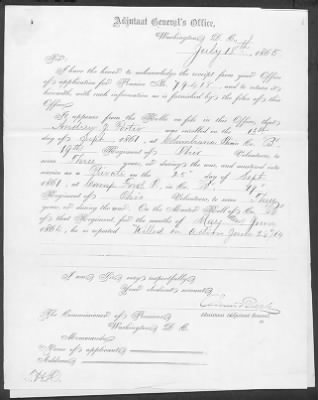 Adjutant General's Office,
Washington, D. C.
July 18th, 1865
Sir:
I have the honor to acknowledge the receipt from your Office
of application for Pension No. 79418, and to return it
herewith, with such information as is furnished by the files of this
Office.
It appears from the Rolls on file in this Office, that
Andrew J. Porter was enrolled on the 13th
day of Sept, 1861, at Columbiana, in Co. B,
19th Regiment of Ohio Volunteers, to
serve Three years, or during the war, and mustered into
service as a Private on the 25th day of Sept
1861, at Camp Ford O, in Co. B, 19
Regiment of Ohio Volunteers, to serve Three
years, or during the war. On the Muster Roll of Co. B
of that Regiment, for the months of May and June
1864, he is reported Killed in action June 22nd/64
I am, Sir, very respectfully,
Your obedient servant,
Assistant Adjutant General.
The Commissioner of Pensions
Washington, D. C.
Memoranda:
Name of applicant
Address